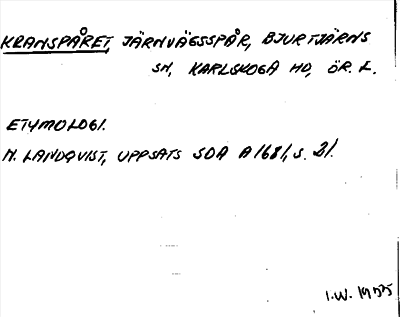 KRANSPÅRET, JÄRNVÄGSSPÅR, BJURTJÄRNS
SN, KARLSKOGA HD, ÖR. L.
ETYMOLOGI.
N. LANDQVIST, UPPSATS SOA A 1681, S. 21.
I.W. 1975